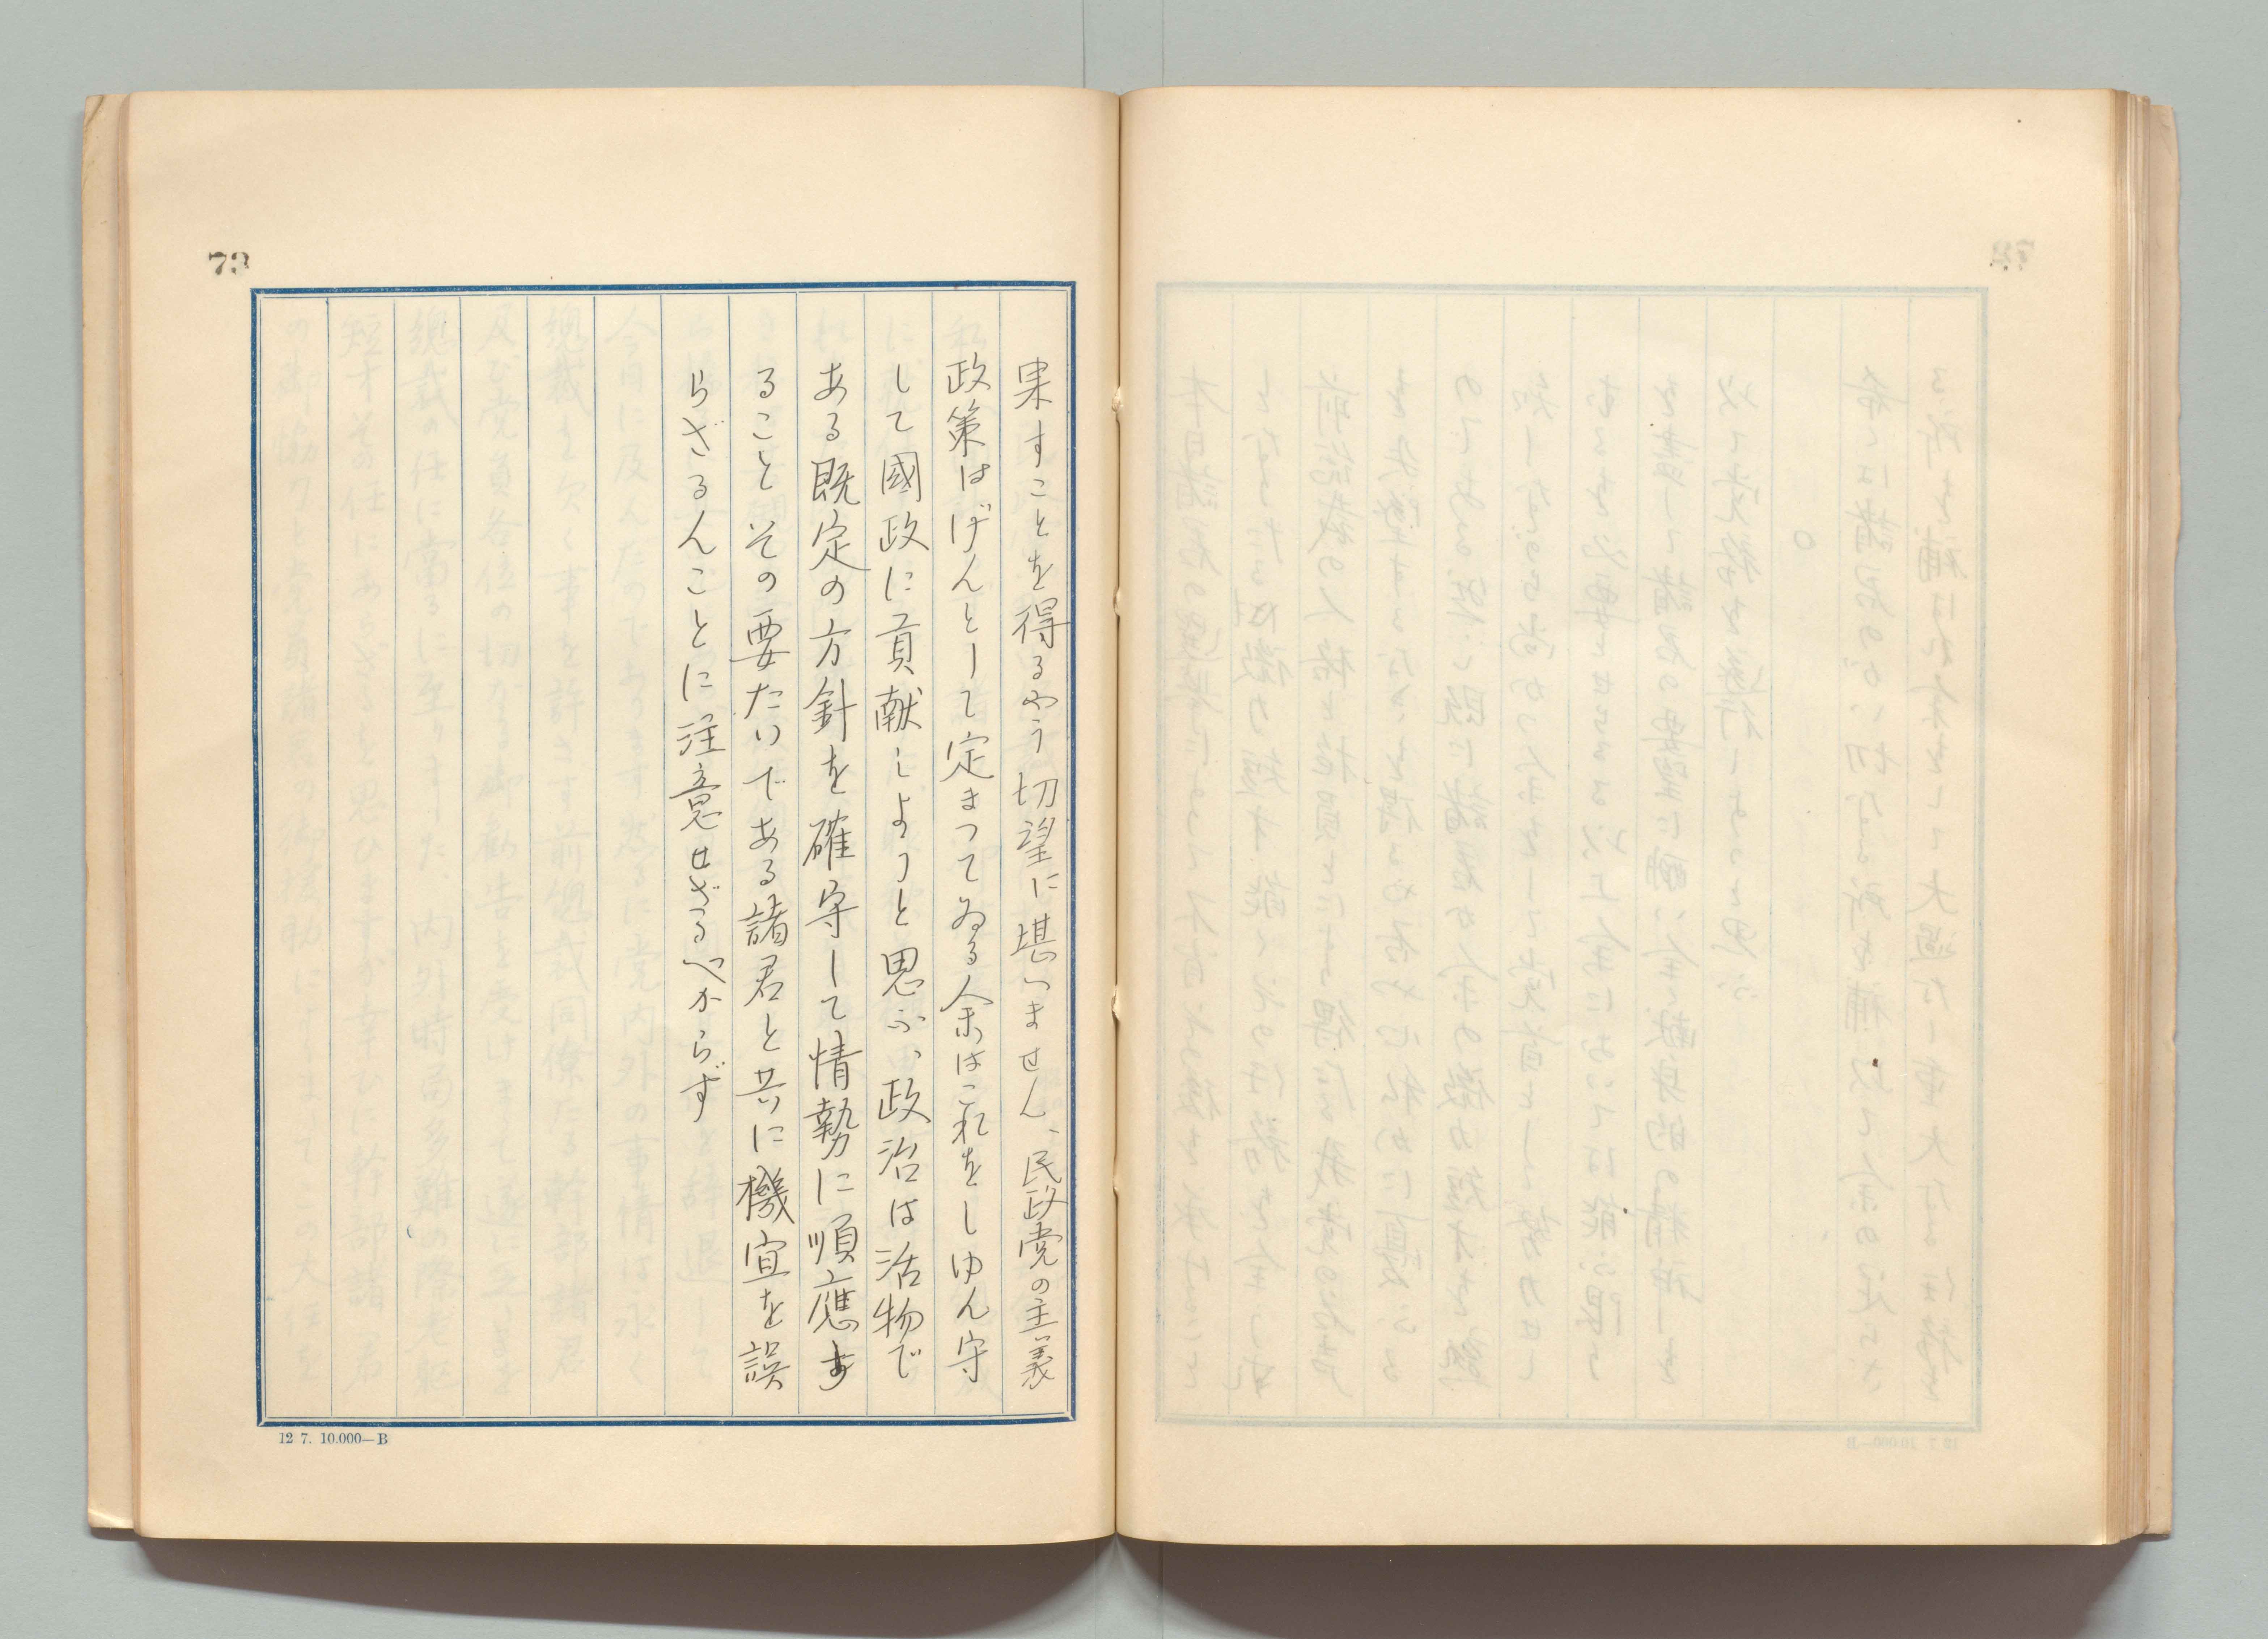 73
果すことを得るやう切望に堪へません、民政党の主義
政策はげんとして定まつてゐる余はこれをしゆん守
して國政に貢献しようと思ふ、政治は活物で
ある既定の方針を確守して情勢に順應す
ることその要たいである諸君と共に機宜を誤
らざるんことに注意せざるべからず
12 7. 10.000—B